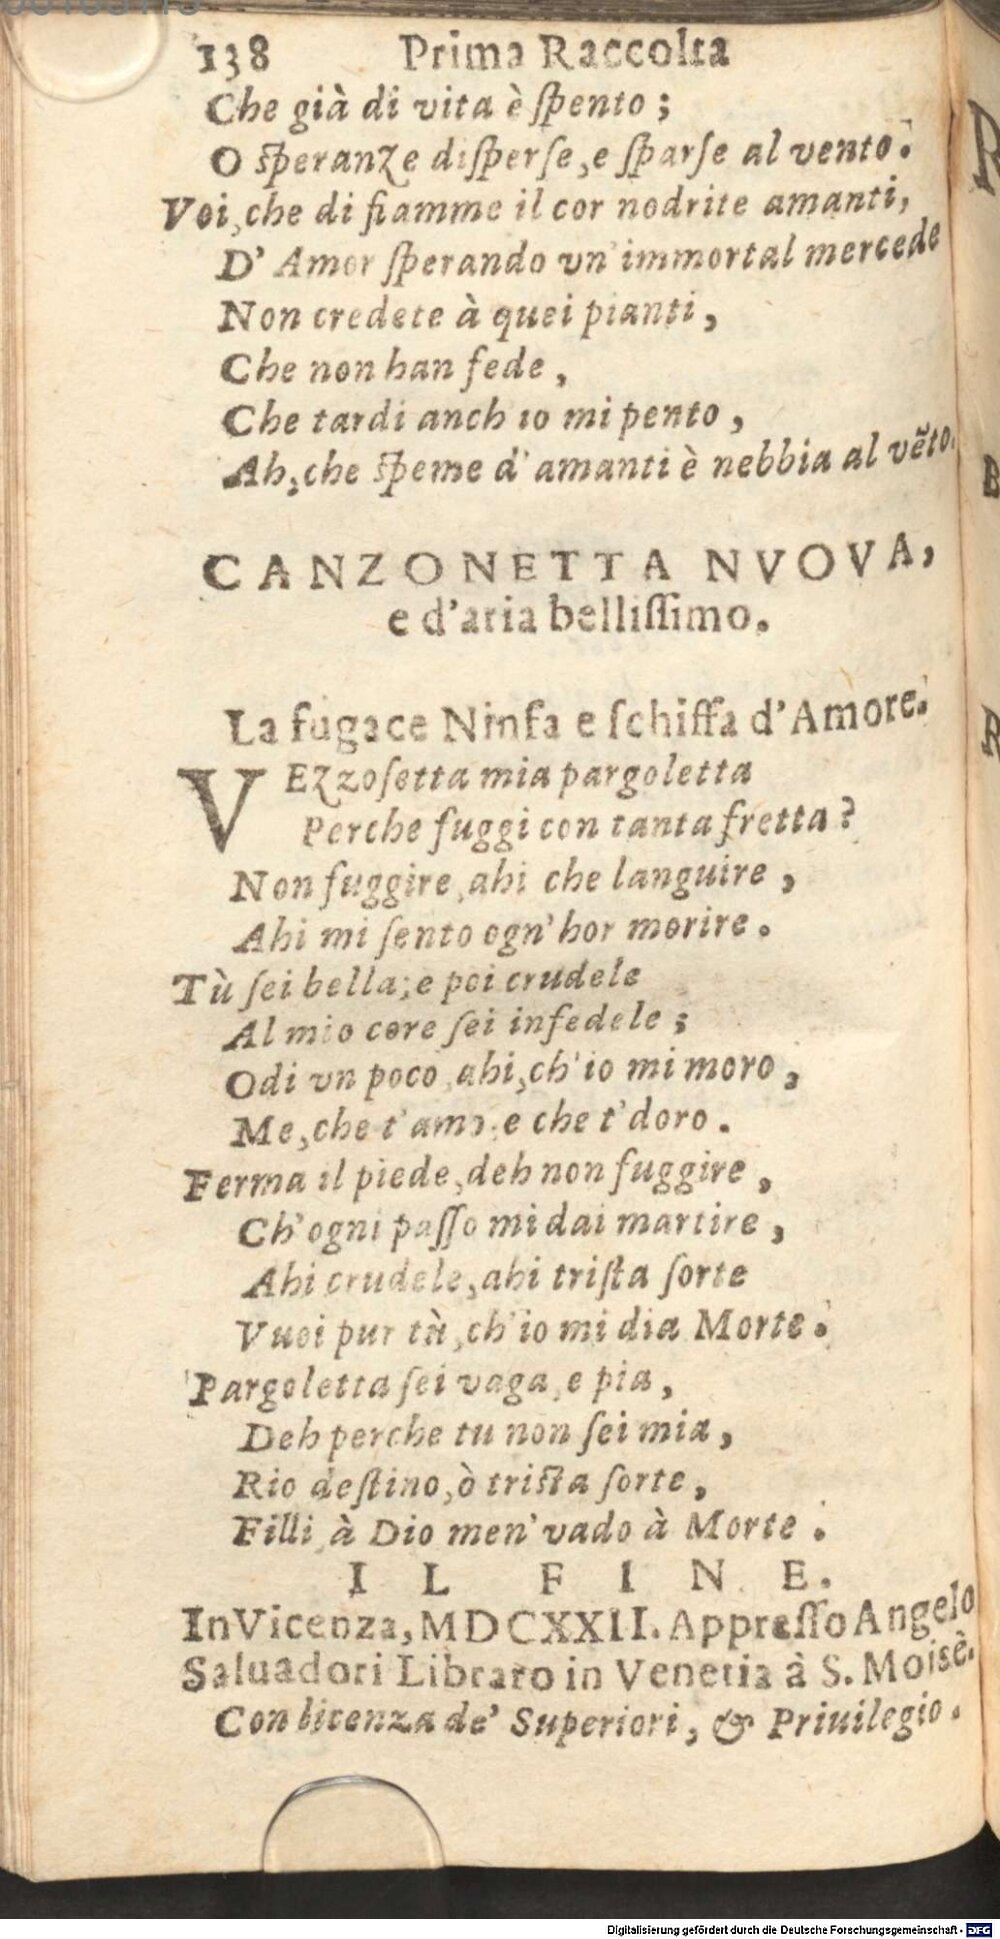 138 Prima Raccolta
Che già di vita è ſpento;
O ſperanze diſperſe, e ſparſe al vento.
Voi, che di fiamme il cor nodrite amanti,
D' Amor ſperando vn' immortal mercede
Non credete à quei pianti,
Che non han fede,
Che tardi anch io mi pento,
Ah, che ſpeme d' amanti è nebbia al vẽto.
CANZONETTA NVOVA,
e d'aria belliſſimo.
La fugace Ninfa e ſchiffa d'Amore.
VEzzoſetta mia pargoletta
Perche fuggi con tanta fretta?
Non fuggire, ahi che languire,
Ahi mi ſento ogn' hor morire.
Tù ſei bella; e poi crudele
Al mio core ſei infedele;
Odi vn poco, ahi, ch' io mi moro,
Me, che t' amo, e che t' doro.
Ferma il piede, deh non fuggire,
Ch' ogni paſſo mi dai martire,
Ahi crudele, ahi triſta ſorte
Vuoi pur tù, ch' io mi dia Morte.
Pargoletta ſei vaga, e pia,
Deh perche tu non ſei mia,
Rio deſtino, ò triſta ſorte,
Filli à Dio men' vado à Morte.
IL FINE.
In Vicenza, MDCXXII. Appreſſo Angelo
Saluadori Libraro in Venetia à S. Moisè.
Con licenza de' Superiori, & Priuilegio.
Digitalisierung gefördert durch die Deutsche Forschungsgemeinschaft - DFG